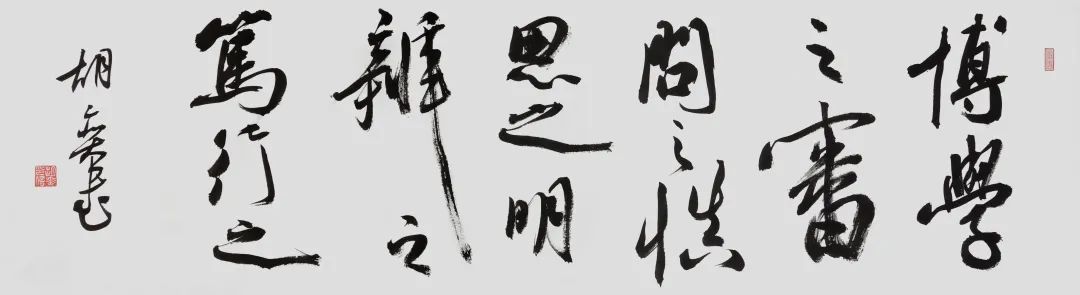 博學
之審
問之慎
思之明
辨之
篤行之
胡